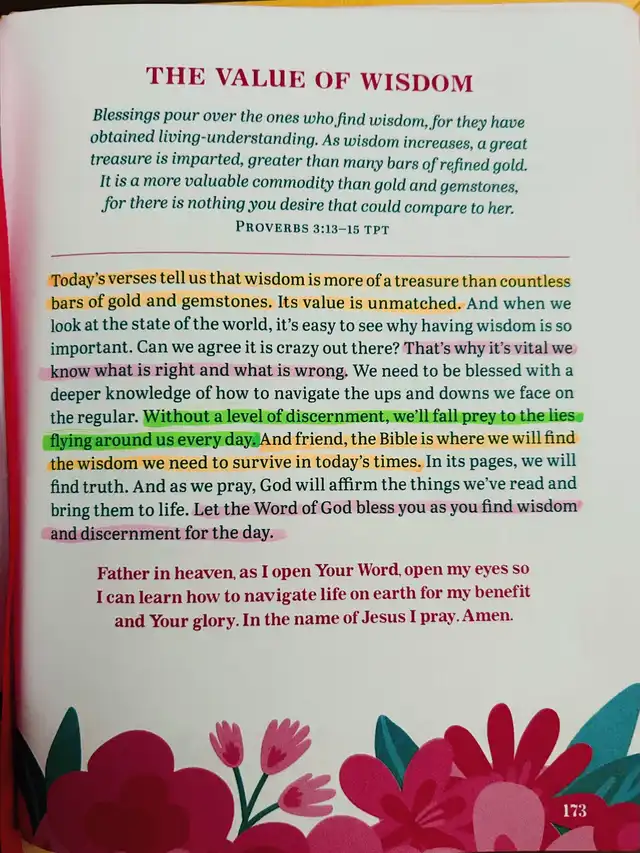 THE VALUE OF WISDOM
Blessings pour over the ones who find wisdom, for they have
obtained living-understanding. As wisdom increases, a great
treasure is imparted, greater than many bars of refined gold.
It is a more valuable commodity than gold and gemstones,
for there is nothing you desire that could compare to her.
PROVERBS 3:13–15 TPT
Today's verses tell us that wisdom is more of a treasure than countless
bars of gold and gemstones. Its value is unmatched. And when we
look at the state of the world, it's easy to see why having wisdom is so
important. Can we agree it is crazy out there? That's why it's vital we
know what is right and what is wrong. We need to be blessed with a
deeper knowledge of how to navigate the ups and downs we face on
the regular. Without a level of discernment, we'll fall prey to the lies
flying around us every day. And friend, the Bible is where we will find
the wisdom we need to survive in today's times. In its pages, we will
find truth. And as we pray, God will affirm the things we've read and
bring them to life. Let the Word of God bless you as you find wisdom
and discernment for the day.
Father in heaven, as I open Your Word, open my eyes so
I can learn how to navigate life on earth for my benefit
and Your glory. In the name of Jesus I pray. Amen.
173